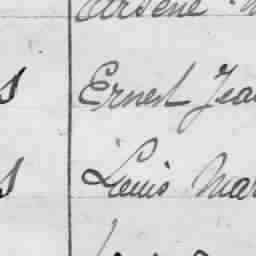 Arsène
Ernest Jea
Louis Mar